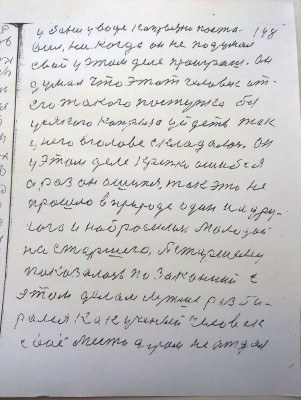 у бани у воде капрызна поста- 148
вил, на когда он не подумал
свой у этом деле проиграш. он
думал что этот человек от-
его такого поступка бу
у него каприза уйдеть так
у него оголове складалои. он
у этом деле крепко ошибся
а, раз он ошипся, так это не
прошло в природе один на дру-
гого и набросились молодой
на старшего, а старшему
показалось по законний с
этом делам лучше разби-
рался как ученый человек
свое место я грам не отдал